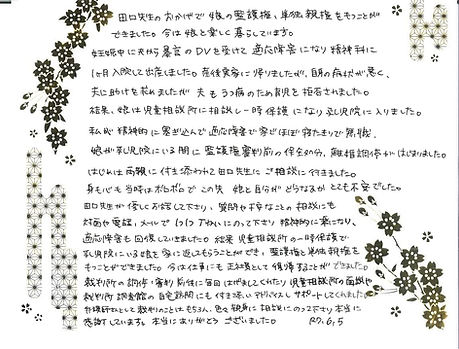 田口先生のおかげで娘の監護権、単独親権をもつことが
できました。今は娘と楽しく暮らしています。
妊娠中に夫から暴言のDVを受けて適応障害になり精神科に
1ヶ月入院して出産しました。産後実家に帰りましたが、自身の病状が悪く、
夫に助けを求めましたが夫もうつ病のため育児を拒否されました。
結果、娘は児童相談所に相談し一時保護になり乳児院に入りました。
私が精神的に塞ぎ込んで適応障害で家でほぼ寝たまりで無職、
娘が乳児院にいる間に監護権審判前の保全処分、離婚調停がはじまりました。
はじめは両親に付き添われて田口先生にご相談に行きました。
身も心も当時はボロボロでこの先娘と自分がどうなるかとても不安でした。
田口先生が優しく応談して下さり、質問や不安なことの相談にも
対面や電話、メールで1つ1つていねいにのって下さり精神的に楽になり、
適応障害も回復していきました。結果児童相談所の一時保護で
乳児院にいる娘を家に返してもらうことができ、監護権と単独親権を
もつことができました。今は仕事にも正社員として復帰することができました。
裁判所の調停・審判前後に毎回はげましてくれたり児童相談所の面談や
裁判所調査官の自宅訪問にも付き添いアドバイスしサポートしてくれました。
弁護師士として裁判のことはもちろん、色々親身に相談にのって下さり本当に
感謝しています。本当にありがとうございました。 R7.6.5